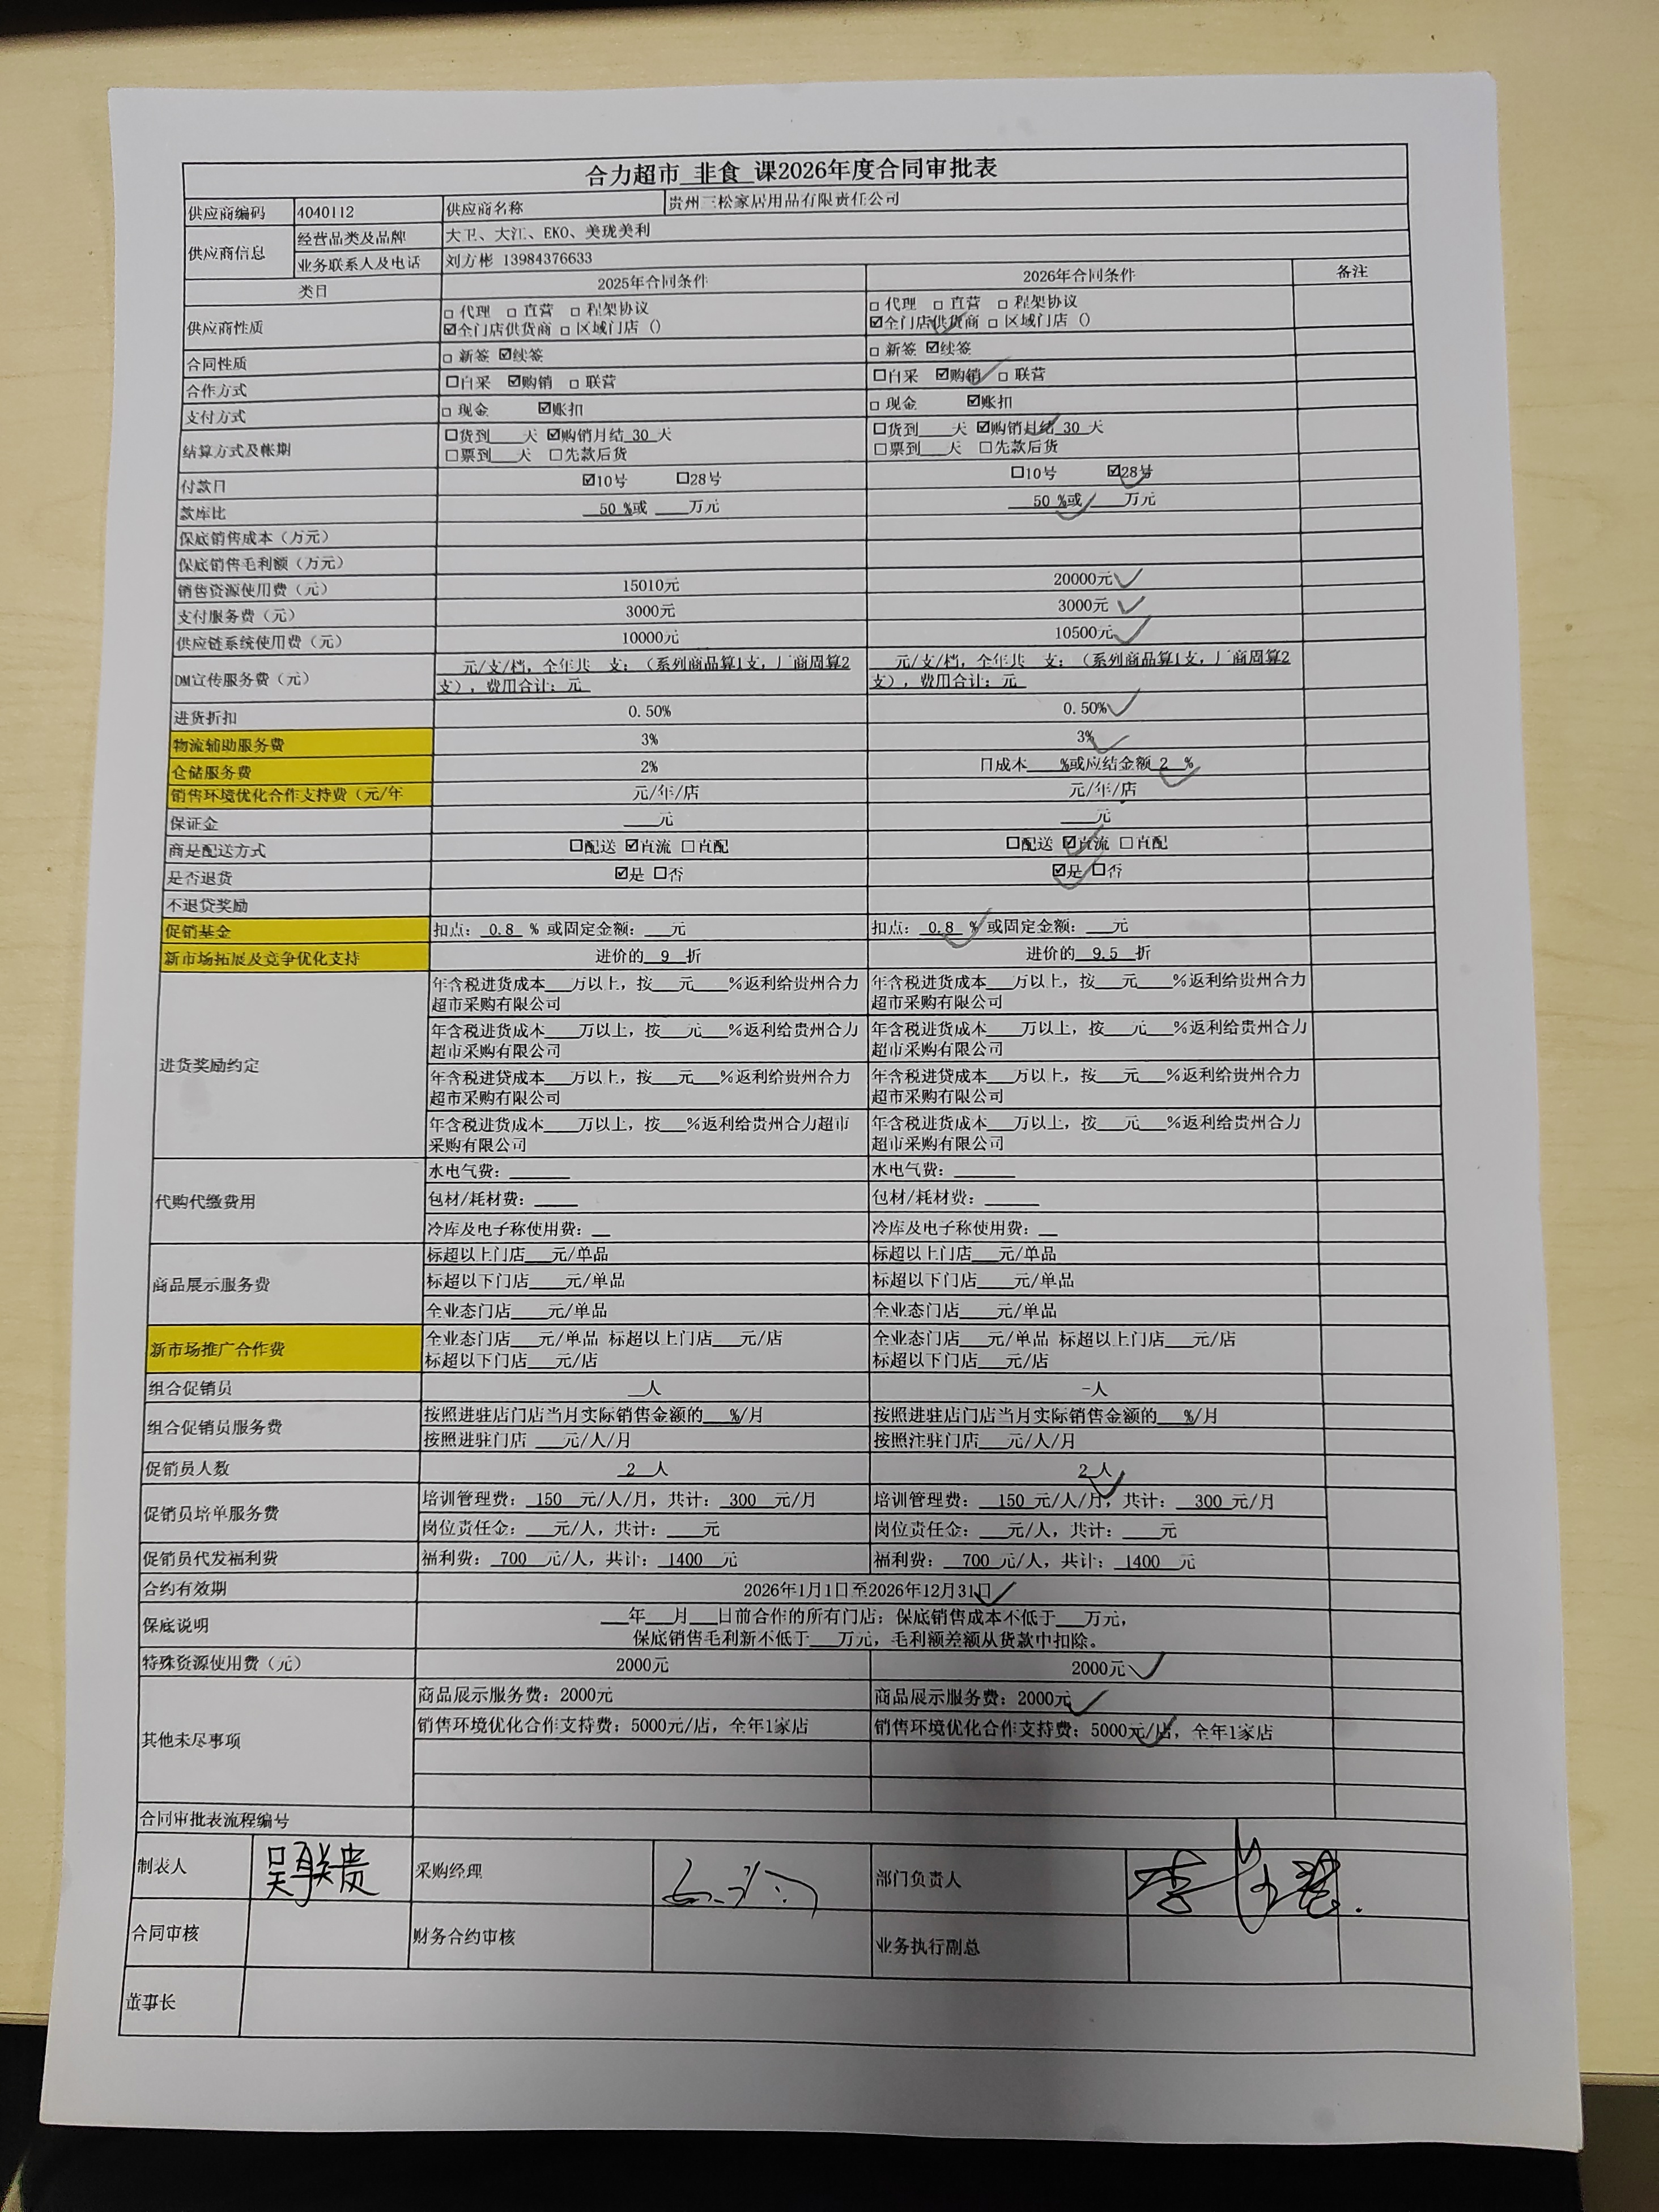 合力超市 非食 课2026年度合同审批表
供应商编码 4040112 供应商名称 贵州三松家居用品有限责任公司
供应商信息 经营品类及品牌 大卫、大江、EKO、美珑美利
业务联系人及电话 刘方彬 13984376633
类目 2025年合同条件 2026年合同条件 备注
供应商性质 □ 代理 □ 直营 □ 程架协议 □ 代理 □ 直营 □ 程架协议
☑全门店供货商 □ 区域门店（） ☑全门店供货商 □ 区域门店（）
合同性质 □ 新签 ☑续签 □ 新签 ☑续签
合作方式 □自采 ☑购销 □ 联营 □自采 ☑购销 □ 联营
支付方式 □ 现金 ☑账扣 □ 现金 ☑账扣
结算方式及帐期 □货到___天 ☑购销月结 30 天 □货到___天 ☑购销月结 30 天
□票到___天 □先款后货 □票到___天 □先款后货
付款日 ☑10号 □28号 □10号 ☑28号
款库比 50 %或 ___万元 50 %或 ___万元
保底销售成本（万元）
保底销售毛利额（万元）
销售资源使用费（元） 15010元 20000元
支付服务费（元） 3000元 3000元
供应链系统使用费（元） 10000元 10500元
DM宣传服务费（元） 元/支/档，全年共 支；（系列商品算1支，厂商周算2 元/支/档，全年共 支；（系列商品算1支，厂商周算2
支），费用合计：元 支），费用合计：元
进货折扣 0.50% 0.50%
物流辅助服务费 3% 3%
仓储服务费 2% 日成本___%或应结金额 2 %
销售环境优化合作支持费（元/年 元/年/店 元/年/店
保证金 ___元 ___元
商品配送方式 □配送 ☑直流 □直配 □配送 ☑直流 □直配
是否退货 ☑是 □否 ☑是 □否
不退货奖励
促销基金 扣点： 0.8 % 或固定金额：___元 扣点： 0.8 % 或固定金额：___元
新市场拓展及竞争优化支持 进价的 9 折 进价的 9.5 折
进货奖励约定 年含税进货成本___万以上，按___元____%返利给贵州合力 年含税进货成本___万以上，按___元___%返利给贵州合力
超市采购有限公司 超市采购有限公司
年含税进货成本___万以上，按___元___%返利给贵州合力 年含税进货成本___万以上，按___元___%返利给贵州合力
超市采购有限公司 超市采购有限公司
年含税进货成本___万以上，按___元___%返利给贵州合力 年含税进货成本___万以上，按___元___%返利给贵州合力
超市采购有限公司 超市采购有限公司
年含税进货成本___万以上，按___%返利给贵州合力超市 年含税进货成本___万以上，按___元___%返利给贵州合力
采购有限公司 超市采购有限公司
代购代缴费用 水电气费：______ 水电气费：______
包材/耗材费：____ 包材/耗材费：_____
冷库及电子称使用费：__ 冷库及电子称使用费：__
商品展示服务费 标超以上门店___元/单品 标超以上门店___元/单品
标超以下门店____元/单品 标超以下门店____元/单品
全业态门店____元/单品 全业态门店____元/单品
新市场推广合作费 全业态门店___元/单品 标超以上门店___元/店 全业态门店___元/单品 标超以上门店___元/店
标超以下门店___元/店 标超以下门店___元/店
组合促销员 __人 -人
组合促销员服务费 按照进驻店门店当月实际销售金额的___%/月 按照进驻店门店当月实际销售金额的___%/月
按照进驻门店 ___元/人/月 按照注驻门店___元/人/月
促销员人数 2 人 2 人
促销员培单服务费 培训管理费： 150 元/人/月，共计： 300 元/月 培训管理费： 150 元/人/月，共计： 300 元/月
岗位责任金：___元/人，共计：____元 岗位责任金：___元/人，共计：____元
促销员代发福利费 福利费： 700 元/人，共计： 1400 元 福利费： 700 元/人，共计： 1400 元
合约有效期 2026年1月1日至2026年12月31日
保底说明 ___年___月___日前合作的所有门店：保底销售成本不低于___万元，
保底销售毛利新不低于___万元，毛利额差额从货款中扣除。
特殊资源使用费（元） 2000元 2000元
其他未尽事项 商品展示服务费：2000元 商品展示服务费：2000元
销售环境优化合作支持费：5000元/店，全年1家店 销售环境优化合作支持费：5000元/店，全年1家店
合同审批表流程编号
制表人 采购经理 部门负责人
合同审核 财务合约审核 业务执行副总
董事长